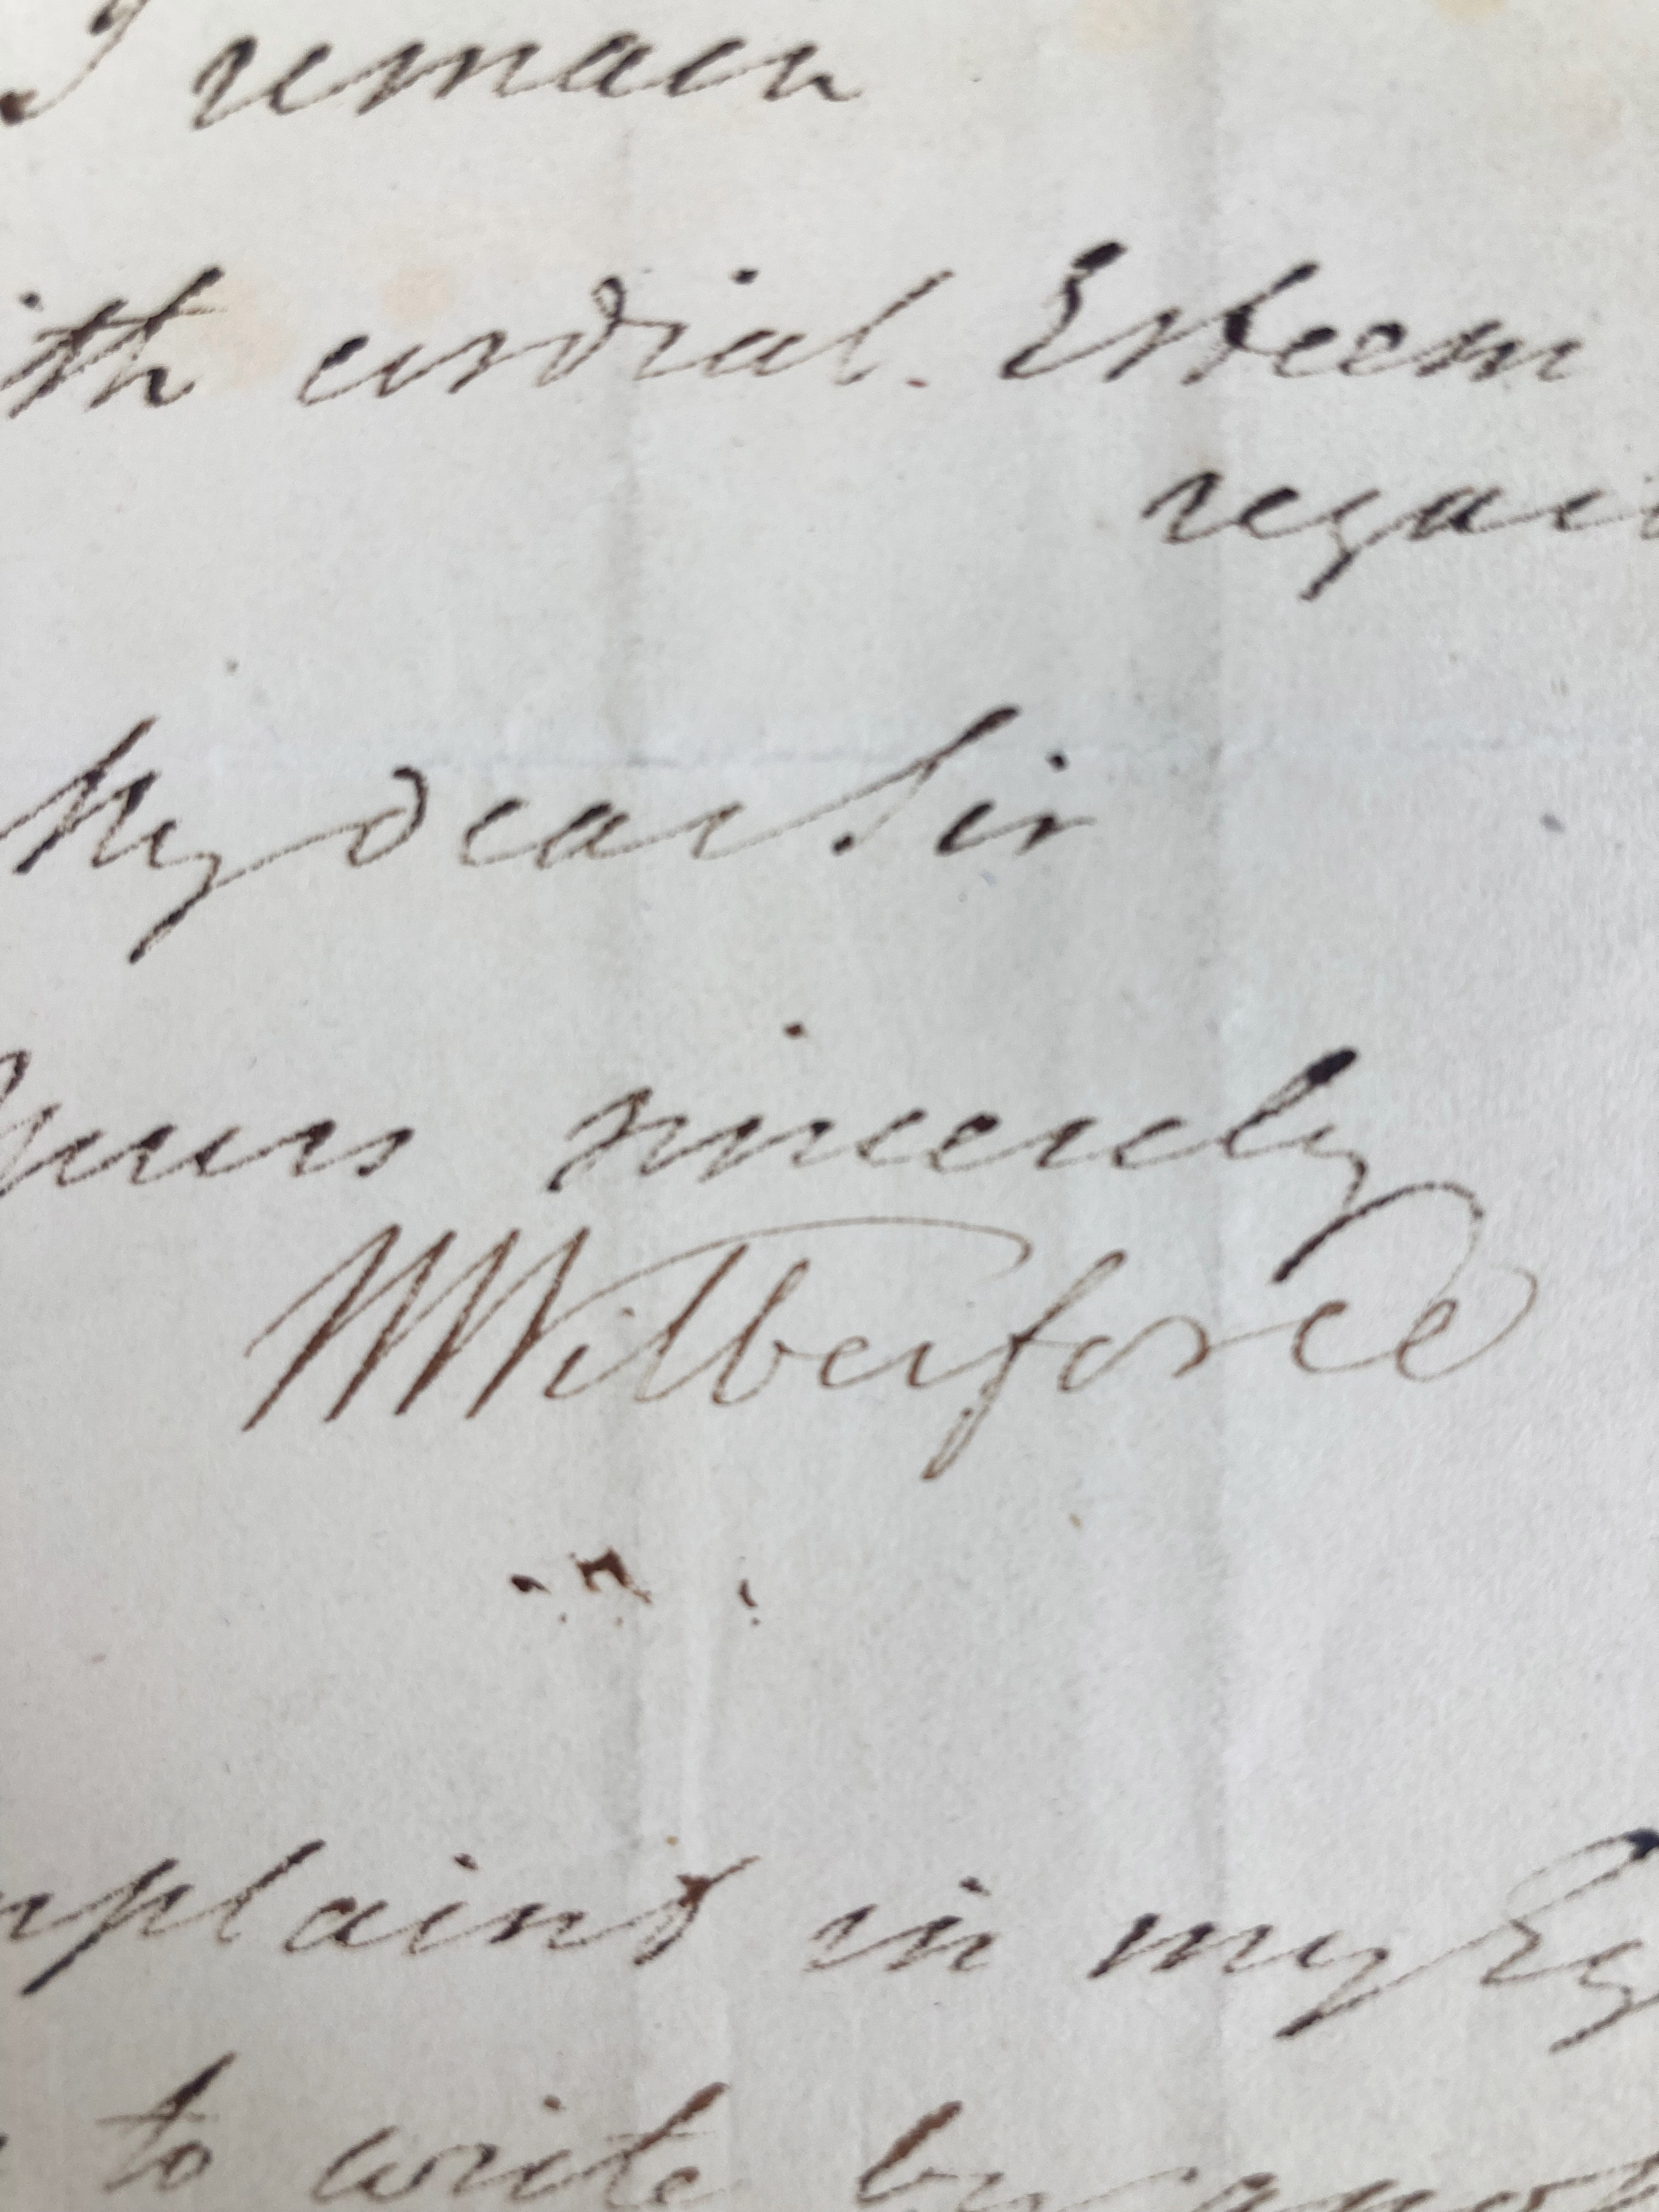 I remain
ith cordial. Esteem
regard
My dear Sir
Yours sincerely
WWilberforce
mplaint in my Ey
to write by anoth